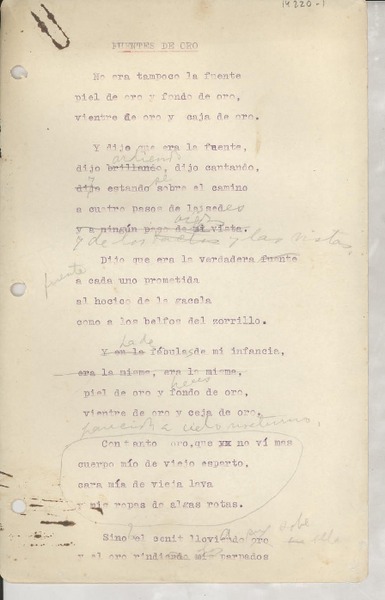 14220-1
FUENTES DE ORO
No era tampoco la fuente
piel de oro y fondo de oro,
vientre de oro y caja de oro.
Y dijo que era la fuente,
ardiendo
dijo brillando, dijo cantando,
y
dijo estando sobre el camino
a cuatro pasos de la sed
y a ningún paso de mi vista.
y de los y las vistas.
Dijo que era la verdadera fuente
fuente
a cada uno prometida
al hocico de la gacela
como a los belfos del zorrillo.
Y en la fábulas de mi infancia,
era la misma, era la misma,
piel de oro y fondo de oro,
vientre de oro y ceja de oro.
Con tanto oro, que xx no ví mas
cuerpo mío de viejo esparto,
cara mía de vieja lava
y mis ropas de algas rotas.
Sino el cenit lloviendo oro
y el oro rindiendo mis parpados